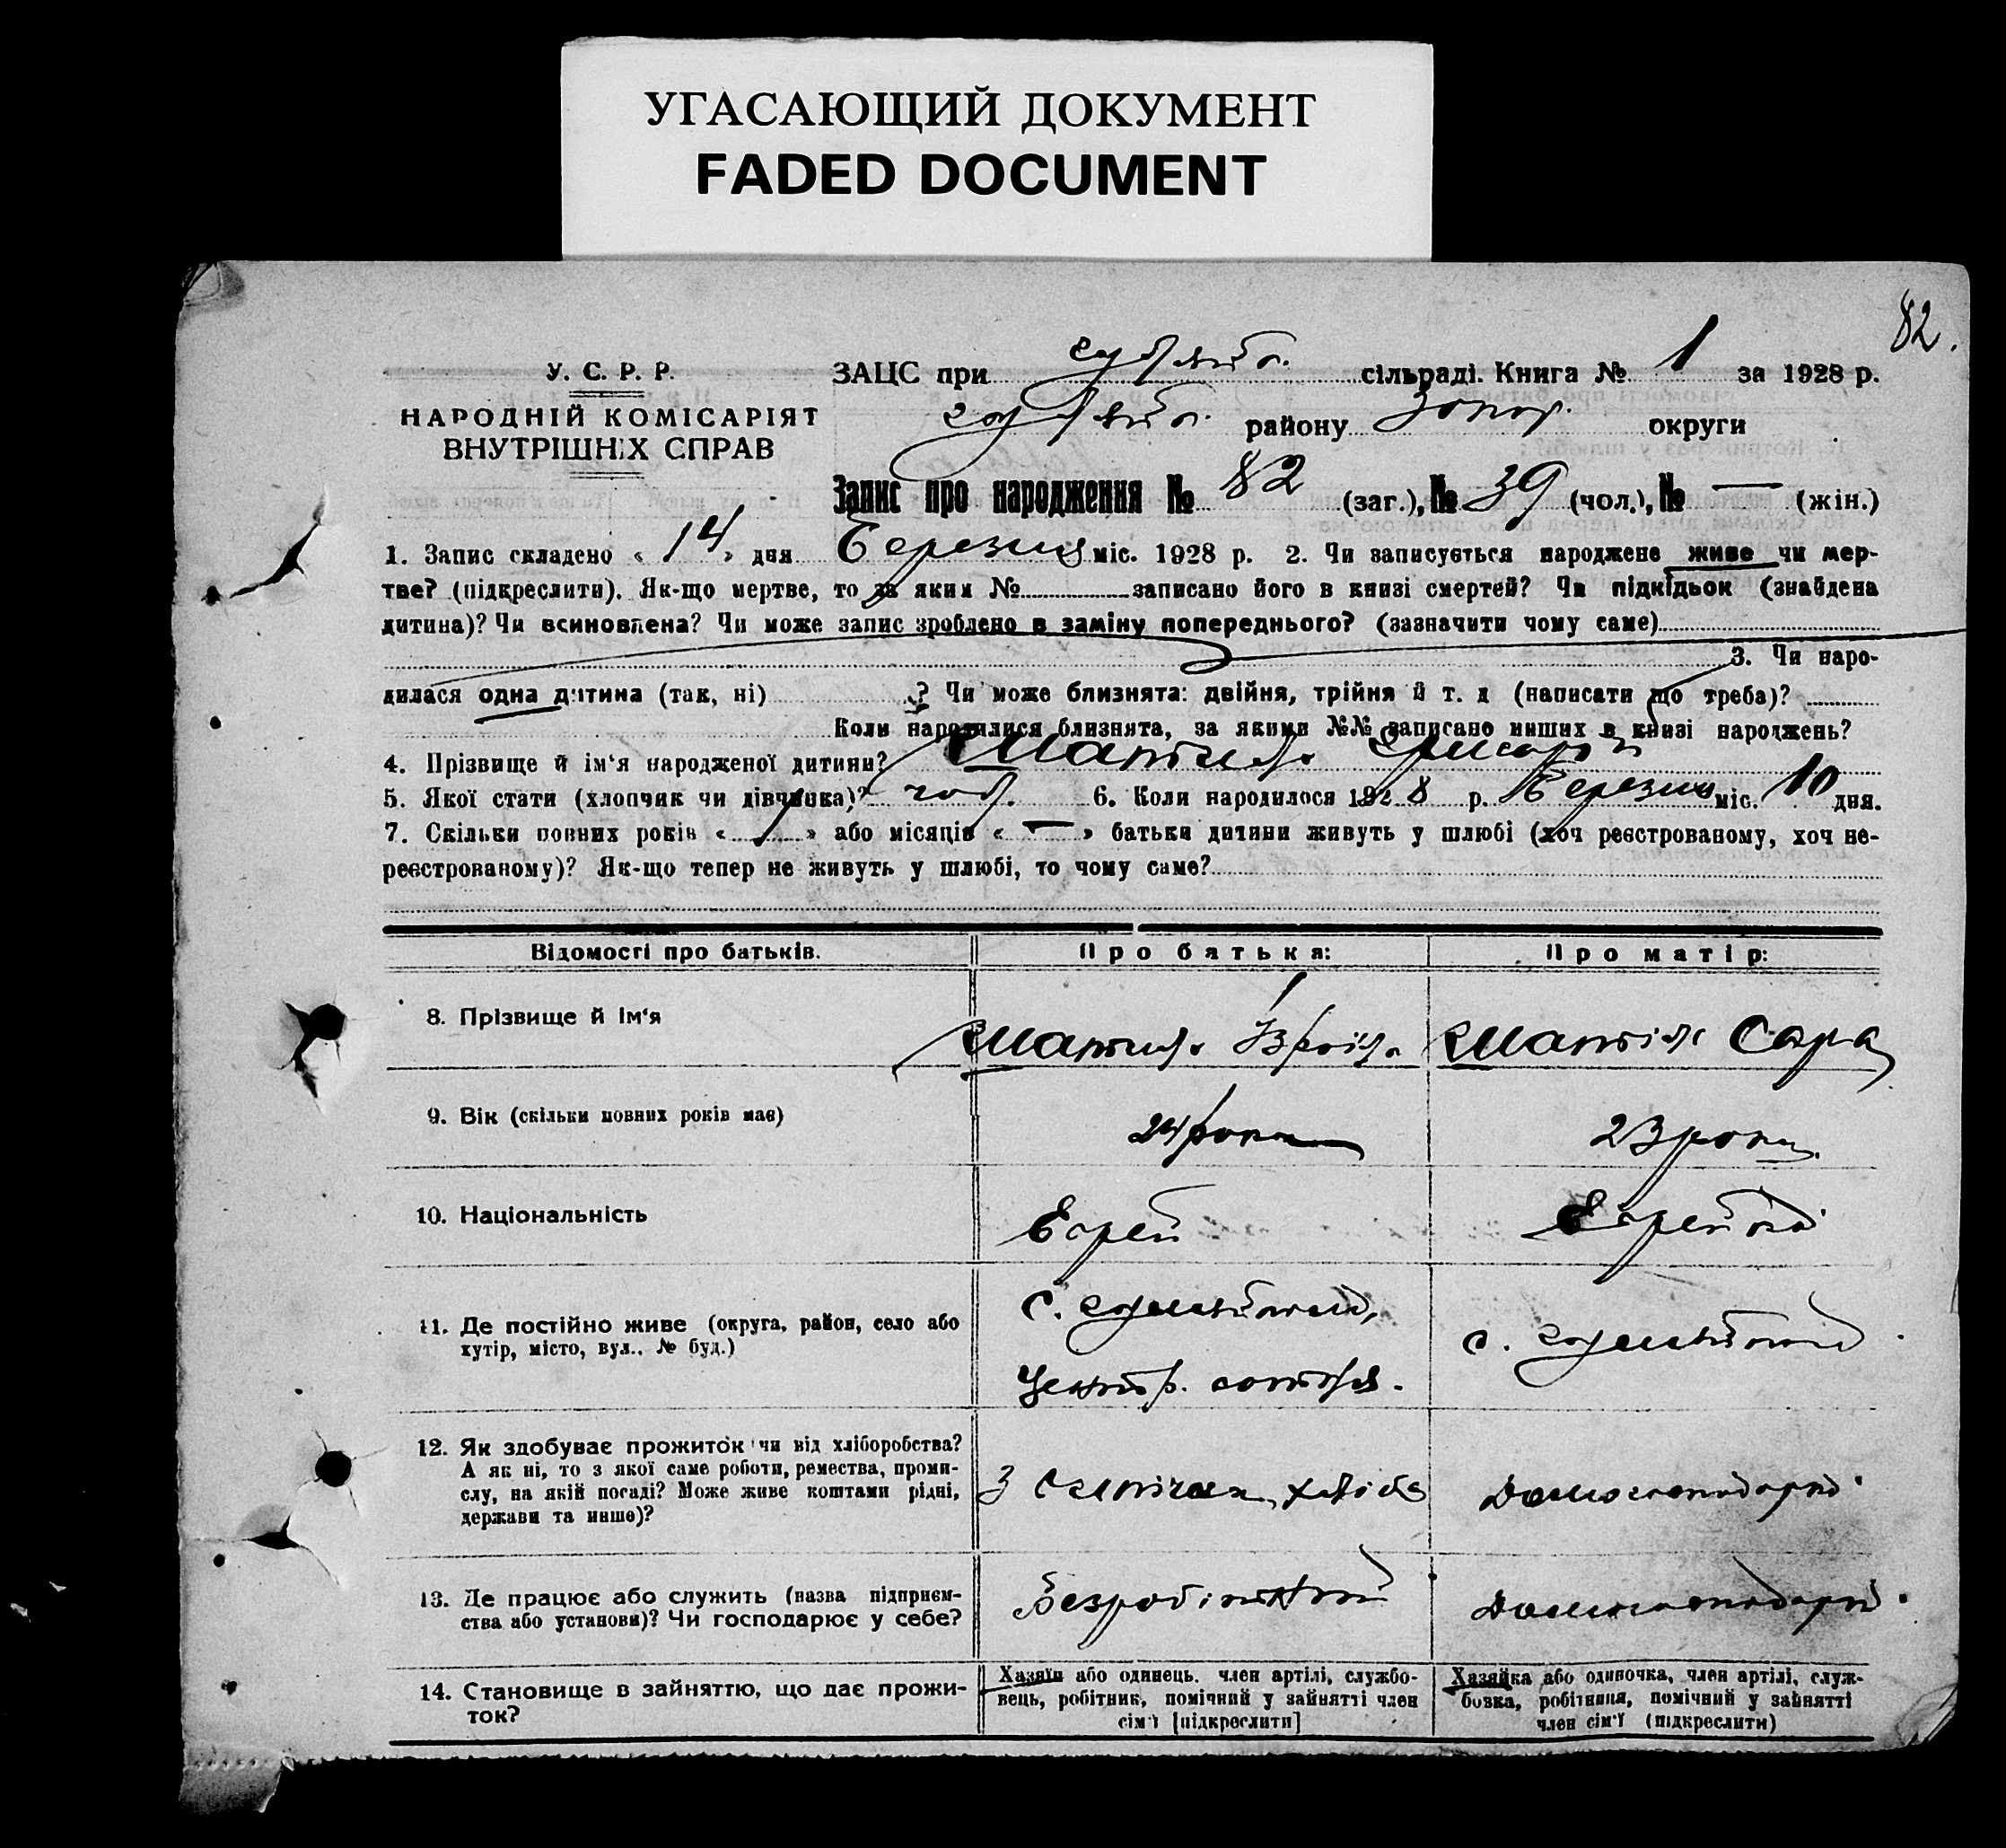 УГАСАЮЩИЙ ДОКУМЕНТ
FADED DOCUMENT
82.
У. С. Р. Р.
НАРОДНІЙ КОМІСАРІЯТ
ВНУТРІШНІХ СПРАВ
ЗАЦС при сільраді. Книга № 1 за 1928 р.
району Запор. округи
Запис про народження № 82 (заг.), № 39 (чол.), № — (жін.)
1. Запис складено « 14 » дня Березня міс. 1928 р. 2. Чи записується народжене живе чи мер-
тве? (підкреслити). Як-що мертве, то за яким № записано його в книзі смертей? Чи підкідьок (знайдена
дитина)? Чи всиновлена? Чи може запис зроблено в заміну попереднього? (зазначити чому саме)
3. Чи наро-
дилася одна дитина (так, ні) ? Чи може близнята: двійня, трійня й т. д (написати що треба)?
Коли народилися близнята, за якими №№ записано инших в книзі народжень?
4. Прізвище й ім‘я народженої дитини?
5. Якої стати (хлопчик чи дівчинка)? чол. 6. Коли народилося 1928 р. Березня міс. 10 дня.
7. Скільки повних років « 1 » або місяців « — » батьки дитини живуть у шлюбі (хоч реєстрованому, хоч не-
реєстрованому)? Як-що тепер не живуть у шлюбі, то чому саме?
Відомості про батьків. Про батька: Про матір:
8. Прізвище й ім‘я Сара
9. Вік (скільки повних років має) 24 роки 23 роки
10. Національність Еврей Еврейка
11. Де постійно живе (округа, район, село або
хутір, місто, вул., № буд.)
Центр. сотня.
12. Як здобуває прожиток чи від хліборобства?
А як ні, то з якої саме роботи, ремества, проми-
слу, на якій посаді? Може живе коштами рідні,
держави та инше)?
Домогосподарка
13. Де працює або служить (назва підприєм-
ства або установи)? Чи господарює у себе?
Безробітний Домогосподарка
14. Становище в зайняттю, що дає прожи-
ток?
Хазяїн або одинець, член артілі, службо-
вець, робітник, помічний у зайнятті член
сім‘ї [підкреслити]
Хазяйка або одиночка, член артілі, служ-
бовка, робітниця, помічний у зайнятті
член сім‘ї (підкреслити)